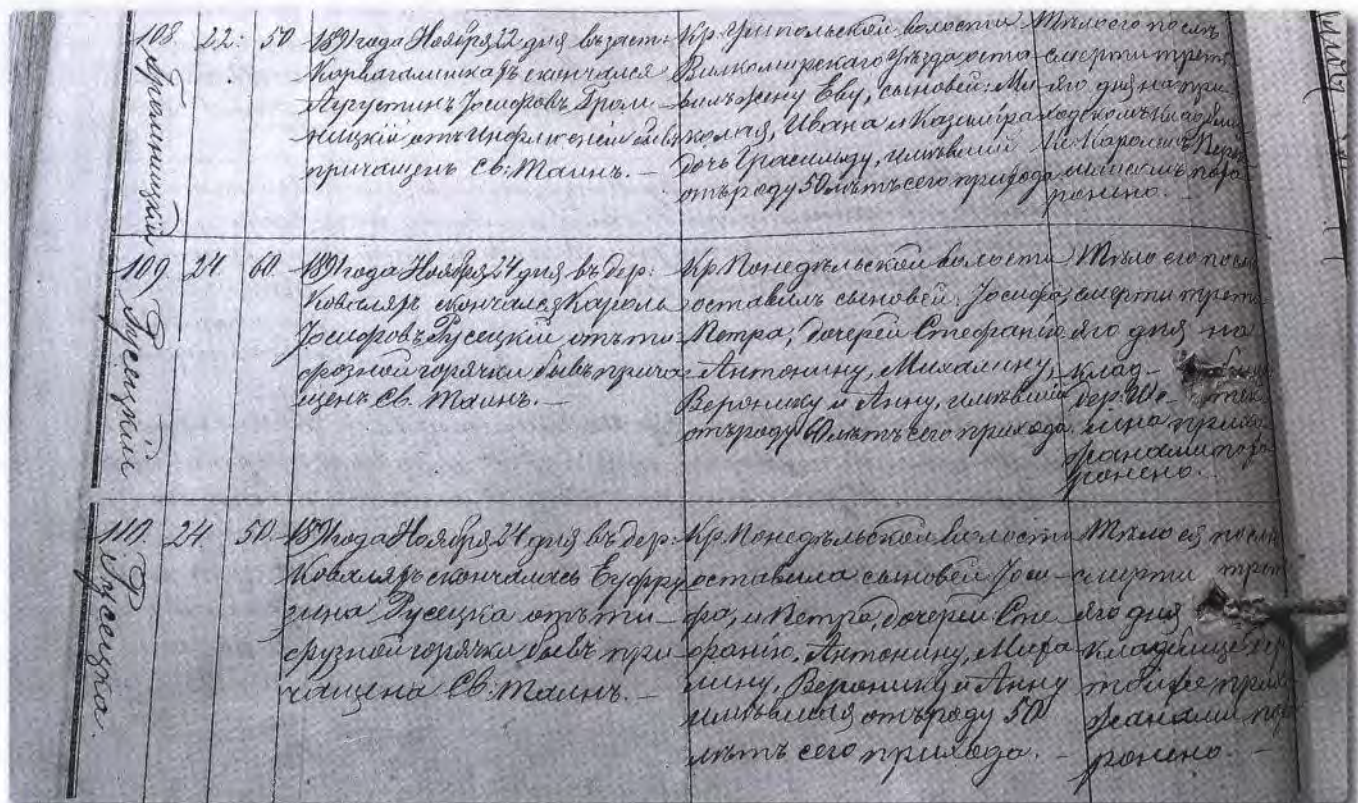 108. 22. 50
Громницкий
1891 года Ноября 22 дня въ заст:
скончался
Августинъ Іосифовъ Гром-
ницкій отъ инфлюенціи бывъ
причащенъ Св: Таинъ. —
Кр. Уцпольской волости
Вилкомирскаго уѣзда оста-
вилъ жену Еву, сыновей: Ми-
колая, Ивана и Казимира
дочь Грасильду, имѣвшій
отъ роду 50 лѣтъ сего прихода
Тѣло его послѣ
смерти треть-
яго дня на при-
ходскомъ кладби
Кс: Каролемъ
похо
ронено. —
109. 24 60.
Русецкій
1891 года Ноября 24 дня въ дер:
Коваляхъ скончался Кароль
Іосифовъ Русецкій отъ ти-
фозной горячки бывъ прича-
щенъ Св. Таинъ. —
Кр. Понедѣльской волости
оставилъ сыновей: Іосифа,
Петра, дочерей Стефанію
Антонину, Михалину,
Веронику и Анну, имѣвшій
отъ роду 60 лѣтъ сего прихода.
Тѣло его послѣ
смерти треть-
яго дня на
клад-
дер:
прихо-
жанами похо-
ронено. —
110. 24. 50
Русецка.
1891 года Ноября 24 дня въ дер:
Коваляхъ скончалась Еуфру
зина Русецка отъ ти-
фузной горячки бывъ при-
чащена Св: Таинъ. —
Кр. Понедѣльской волости
оставила сыновей Іоси-
фа, и Петра, дочерей Сте-
фанію, Антонину, Миха-
лину, Веронику и Анну
имѣвшая отъ роду 50
лѣтъ сего прихода. —
Тѣло ея послѣ
смерти трет
яго дня
кладбище дер
той же прихо-
жанами по
ронено. —